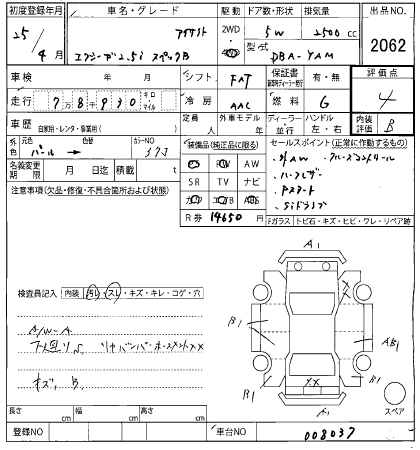 初度登録年月 車名・グレード 駆動 ドア数・形状 排気量 出品NO.
25年4月 アイサイト 2WD・4WD 5W 2500cc 2062
エクシーガ2.5i スペックB 型式 DBA-YAM
車検 年 月 シフト FAT 保証書 有・無 評価点
走行 78930 キロ マイル 冷房 AAC 燃料 G 4
車歴 自家用・レンタ・事業用( ) 定員 人 外車モデル 年 ディーラー・並行 ハンドル 左・右 内装評価 B
外色 元色 パール 色替 カラーNO 37J
装備品(純正品に限る) セールスポイント(正常に作動するもの)
名義変更期限 月 日迄 積載 t
AW
SR TV ナビ
注意事項(欠品・修復・不具合箇所および状態)
ハーフレザー
Pスタート
SIドライブ
R券 14650 Fガラス トビ石・キズ・ヒビ・ワレ・リペア跡
A1
検査員記入 内装 ヨゴレ・スレ・キズ・キレ・コゲ・穴
A/W-A
B1 AB1
XX
B1 B1
キズ、B
A1 スペア
長さ cm 幅 cm 高さ cm
登録NO 車台NO 008037